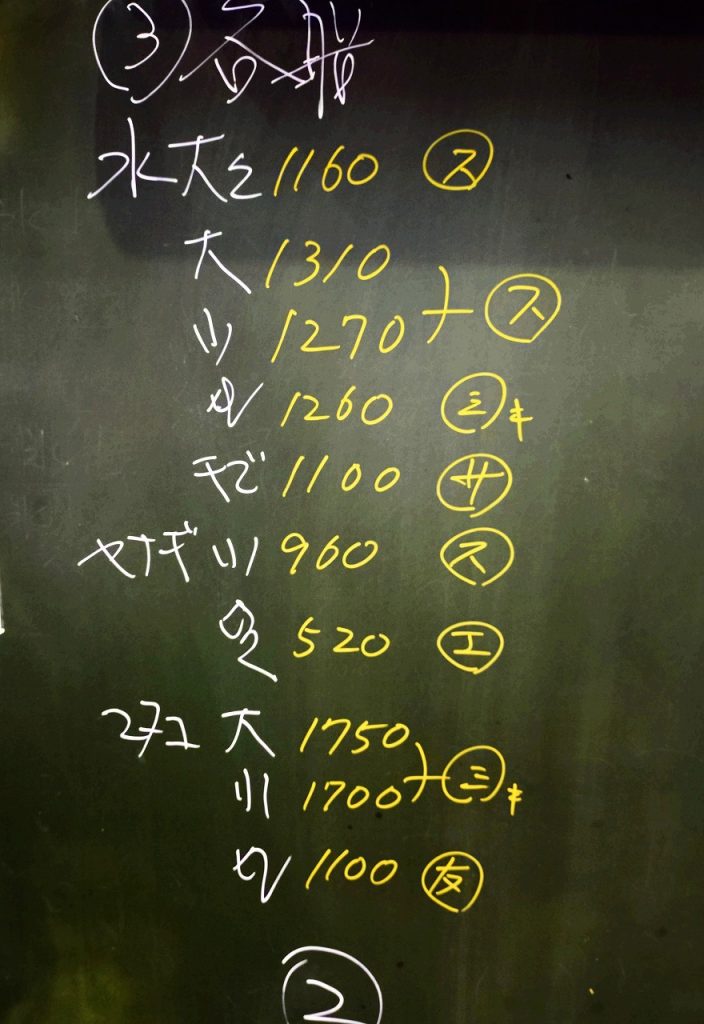 ③各船
水大 1160 ㋜
大 1310
小 1270 ㋜
1260 ㋯キ
チビ 1100 ㋚
ヤナギ 小 960 ㋜
520 ㋓
マチユ 大 1750
小 1700 ㋯キ
1100 友
②